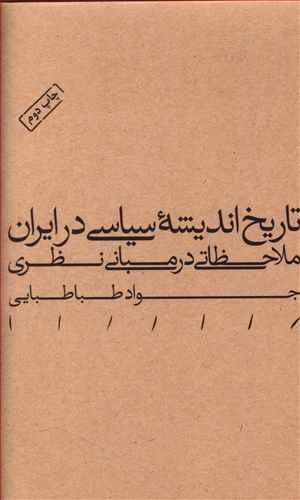 چاپ دوم
تاریخ اندیشهٔ سیاسی در ایران
ملاحظاتی در مبانی نظری
جواد طباطبایی